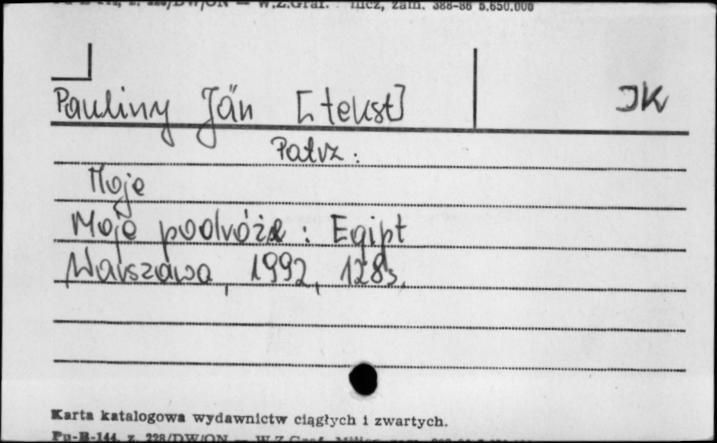 Pu-B-144, z. 228/DW/ON — W.Z.Graf. zam. 388-86 5.650.000
Pauliny Ján [tekst] JK
Patrz:
Moje
Moje podróże : Egipt
Warszawa, 1992, 128s.
Karta katalogowa wydawnictw ciągłych i zwartych.
Pu-B-144, z. 228/DW/ON — W.Z.Graf.